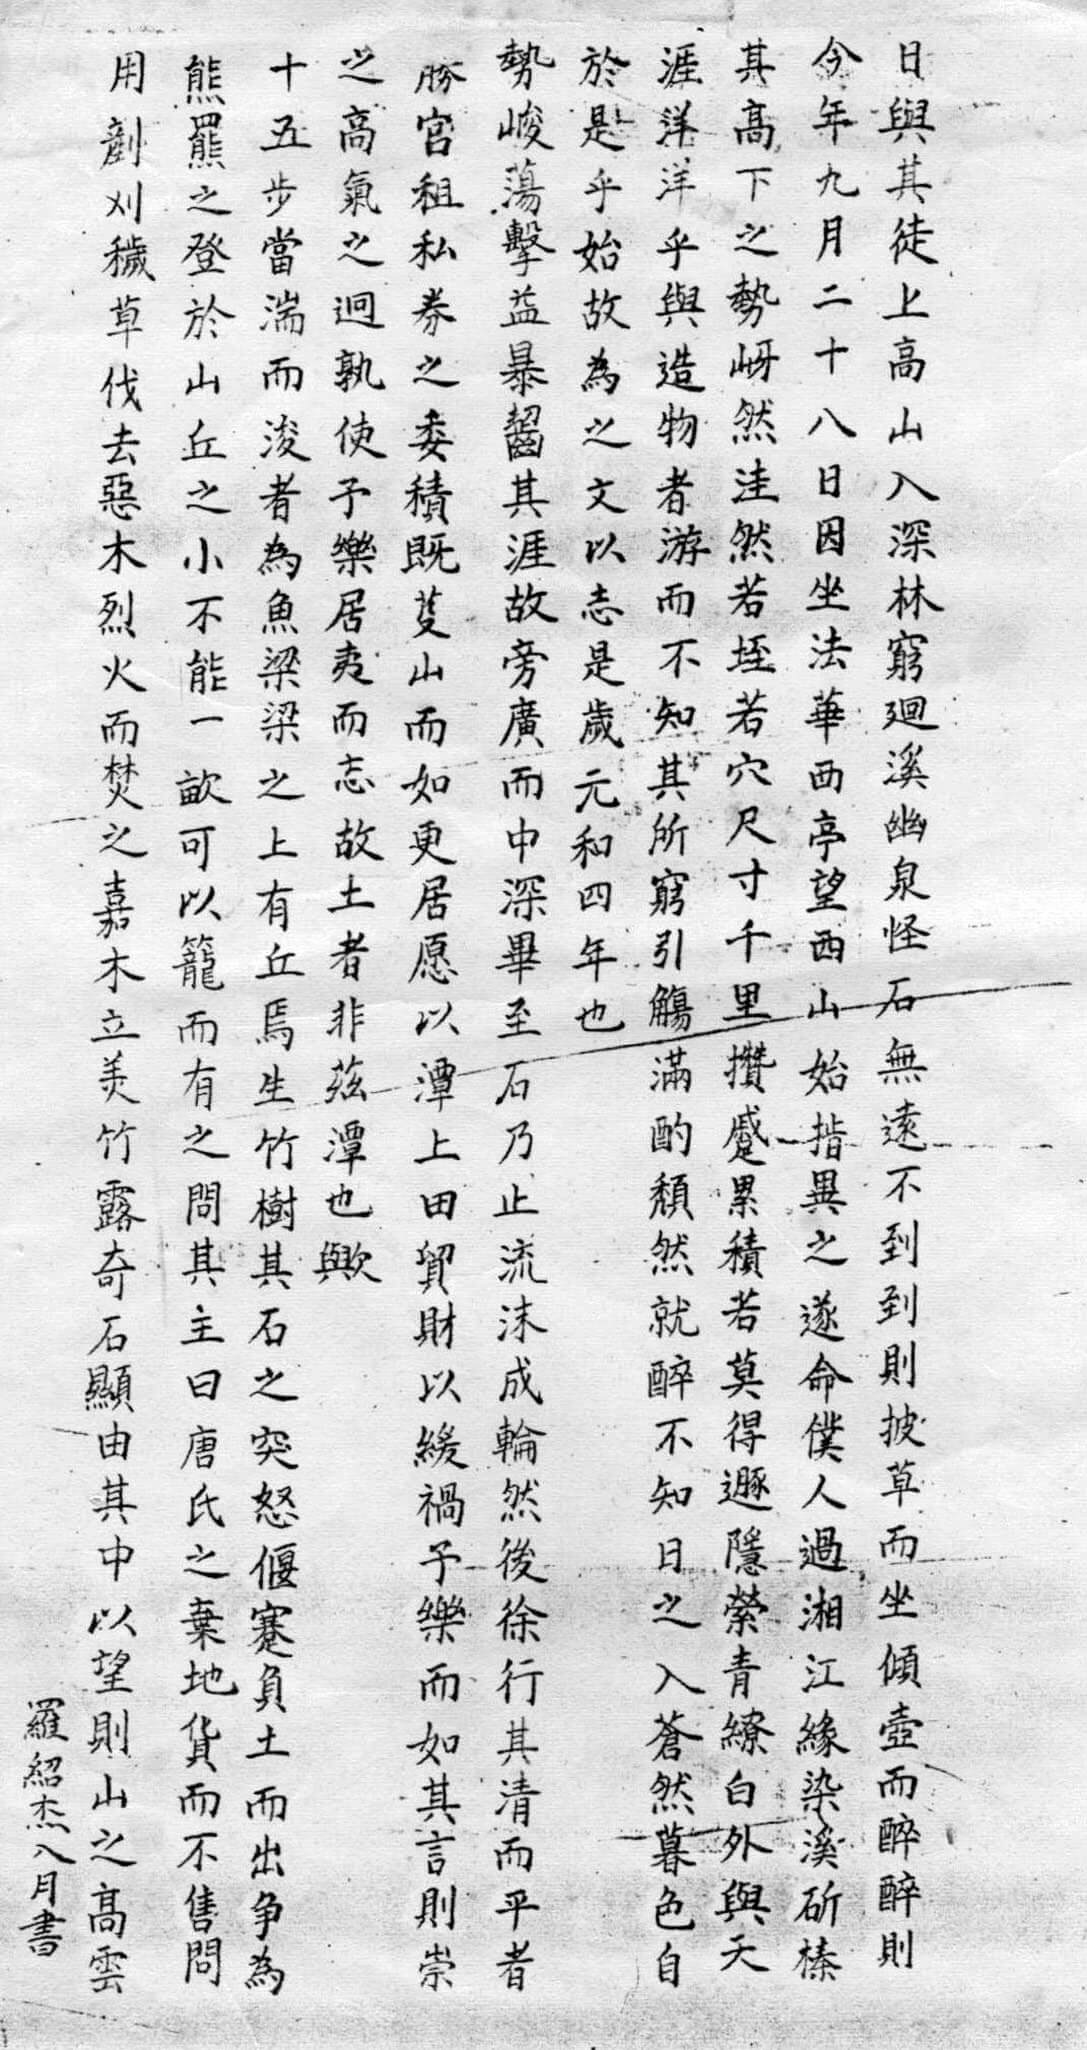 日與其徒上高山入深林窮迴溪幽泉怪石無遠不到到則披草而坐傾壺而醉醉則
今年九月二十八日因坐法華西亭望西山始指異之遂命僕人過湘江緣染溪斫榛
其高下之勢岈然洼然若垤若穴尺寸千里攢蹙累積若莫得遯隱縈青繚白外與天
涯洋洋乎與造物者游而不知其所窮引觴滿酌頹然就醉不知日之入蒼然暮色自
於是乎始故為之文以志是歲元和四年也
勢峻蕩擊益暴齧其涯故旁廣而中深畢至石乃止流沫成輪然後徐行其清而平者
勝官租私券之委積既芟山而如更居愿以潭上田貿財以緩禍予樂而如其言則崇
之高氣之迥孰使予樂居夷而志故土者非茲潭也歟
十五步當湍而浚者為魚梁梁之上有丘焉生竹樹其石之突怒偃蹇負土而出爭為
熊羆之登於山丘之小不能一畝可以籠而有之問其主曰唐氏之棄地貨而不售問
用剷刈穢草伐去惡木烈火而焚之嘉木立美竹露奇石顯由其中以望則山之高雲
羅紹杰八月書